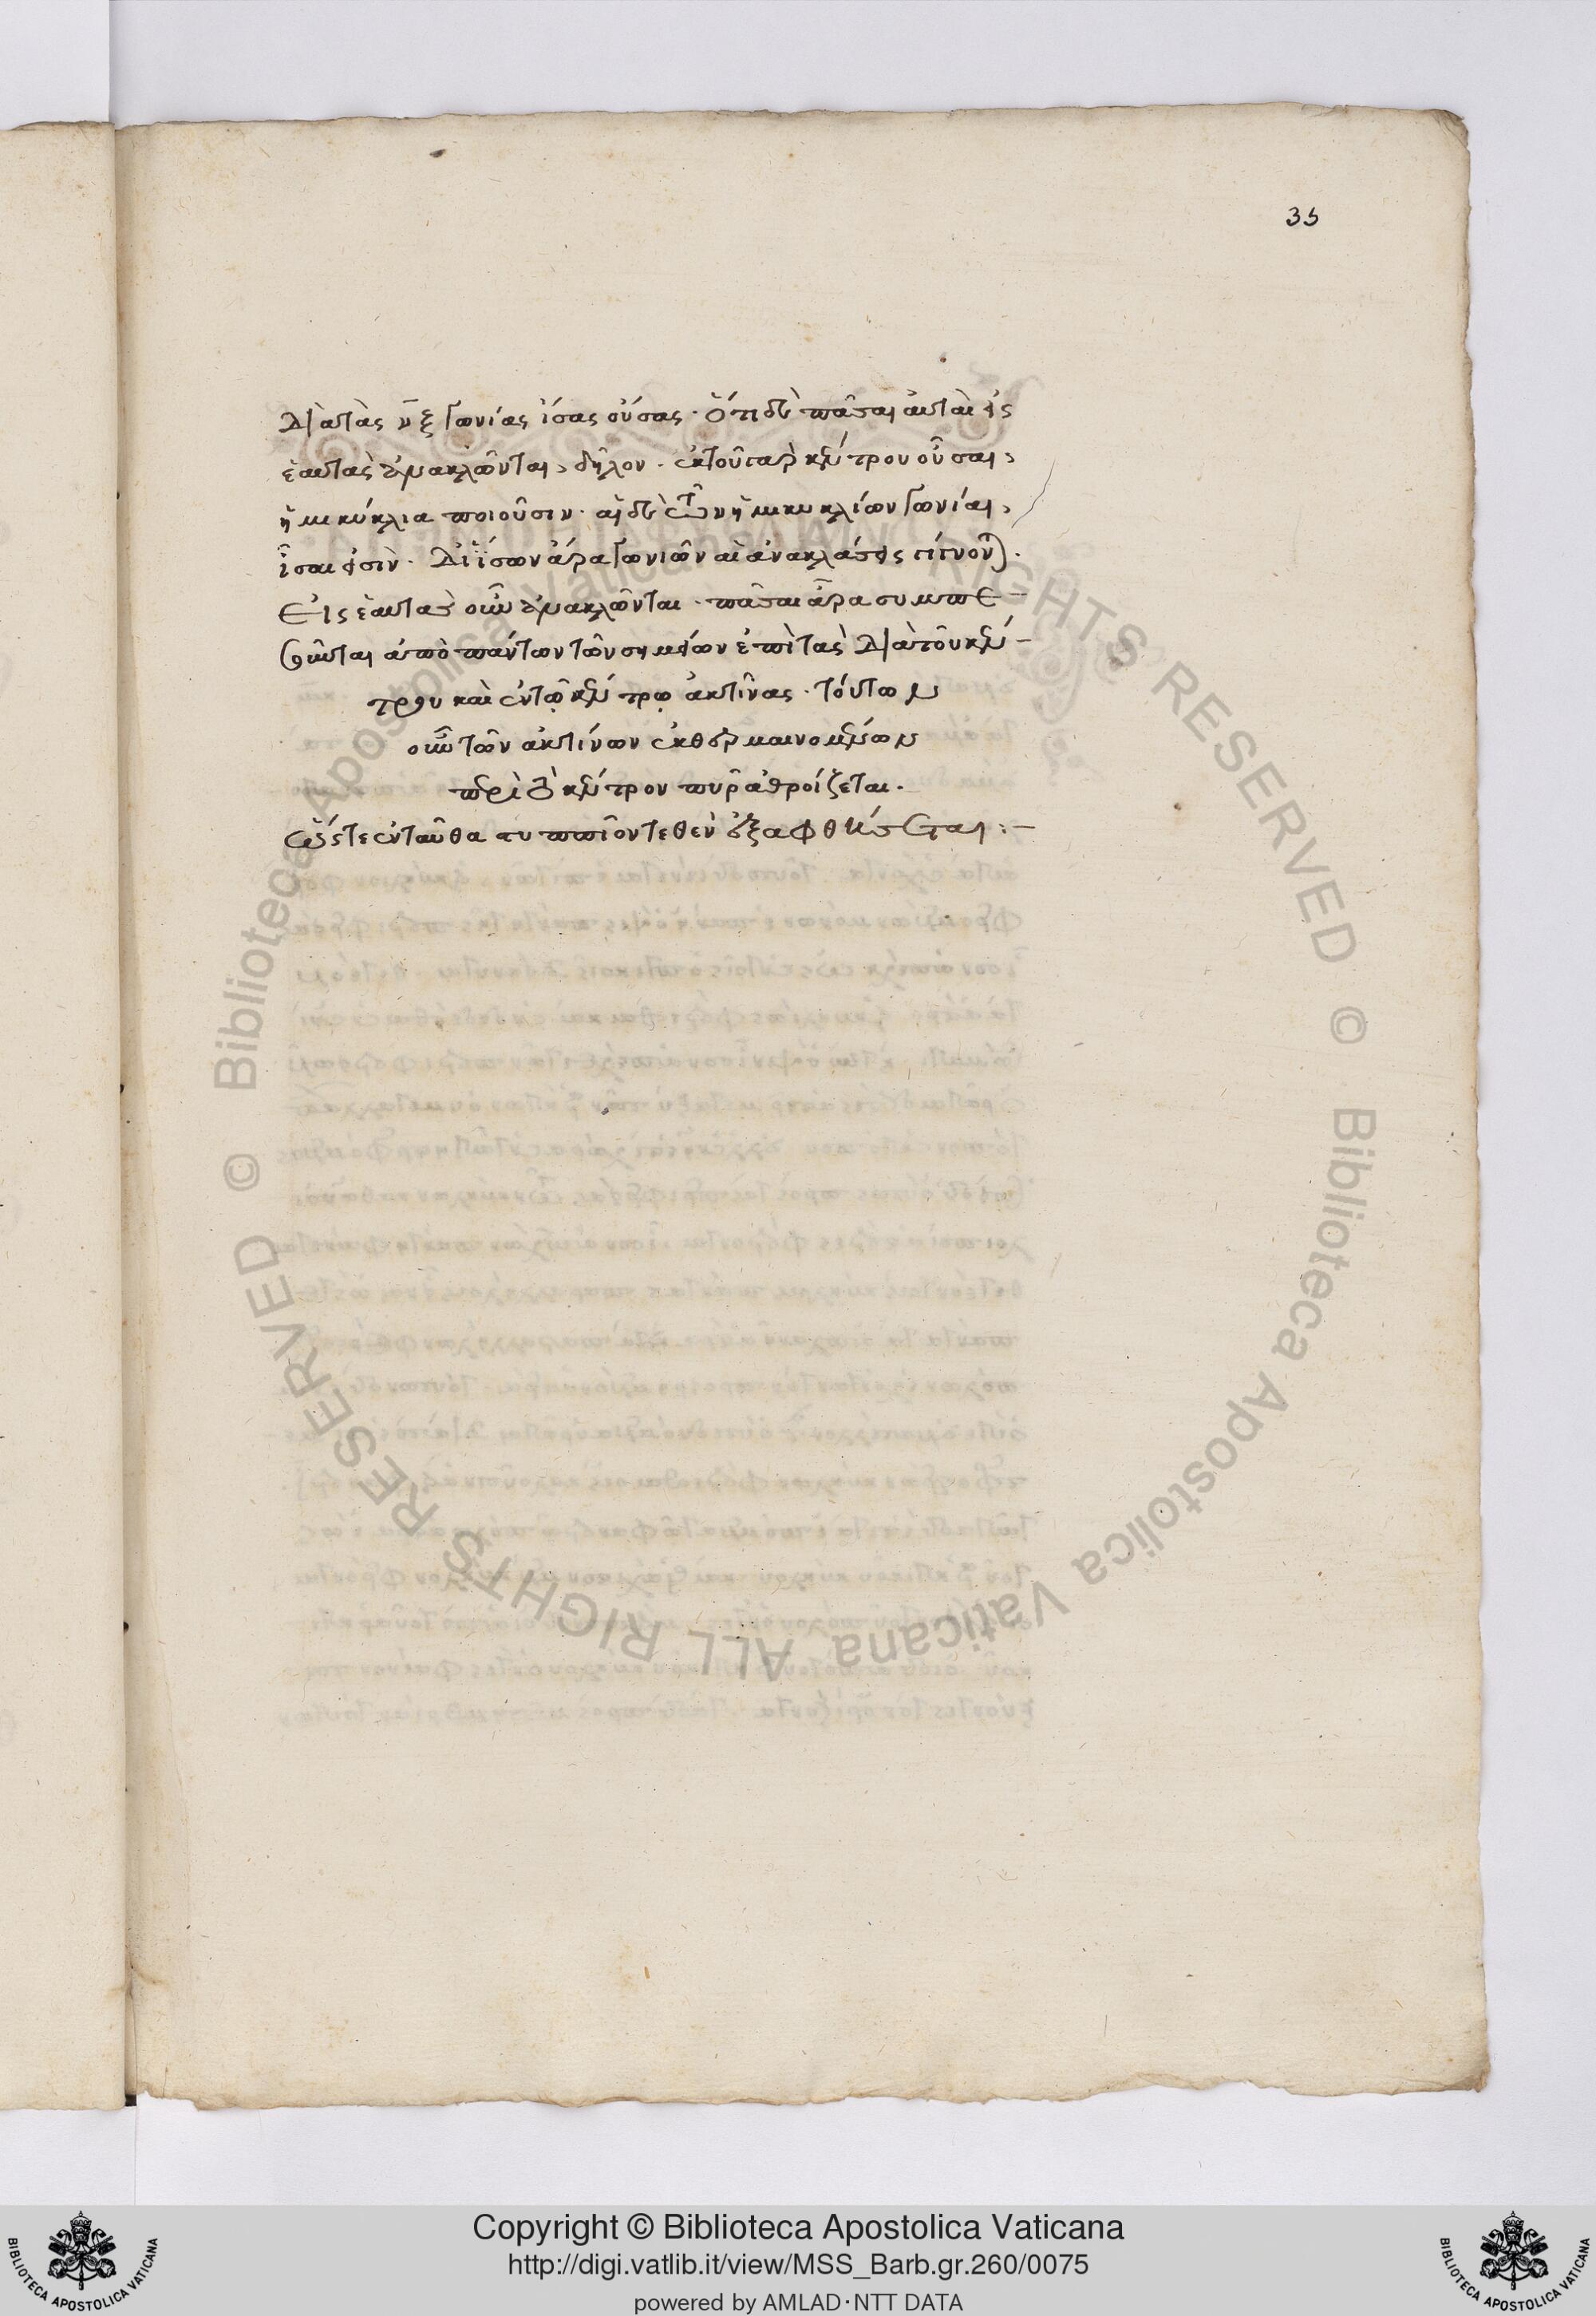 35
διὰ τὰς ν̄ ξ̄ γωνίας ἴσας οὔσας · ὅτι δὲ πᾶσαι αὗται εἰς
ἑαυτὰς ἀνακλῶνται, δῆλον · ἐκ τοῦ γὰρ κέντρου οὖσαι,
ἡμικύκλια ποιοῦσιν · αἱ δὲ τῶν ἡμικυκλίων γωνίαι,
ἴσαι εἰσὶν · δι ἴσων ἄρα γωνιῶν αἱ ἀνακλάσεις γίγνονται ·
εἰς ἑαυτὰς οὖν ἀνακλῶνται · πᾶσαι ἄρα συμπε-
σοῦνται ἀπὸ πάντων τῶν σημείων ἐπὶ τὰς διὰ τοῦ κέν-
τρου καὶ ἐν τῷ κέντρῳ ἀκτῖνας · τούτων
οὖν τῶν ἀκτίνων ἐκθερμαινομένων
περὶ τὸ κέντρον πῦρ ἀθροίζεται ·
ὥστε ἐνταῦθα στυππῖον τεθὲν ἐξαφθήσεται :-
© Biblioteca Apostolica Vaticana ALL RIGHTS RESERVED © Biblioteca Apostolica Vaticana ALL RIGHTS RESERVED
Copyright © Biblioteca Apostolica Vaticana
http://digi.vatlib.it/view/MSS_Barb.gr.260/0075
powered by AMLAD·NTT DATA
BIBLIOTECA APOSTOLICA VATICANA
BIBLIOTECA APOSTOLICA VATICANA